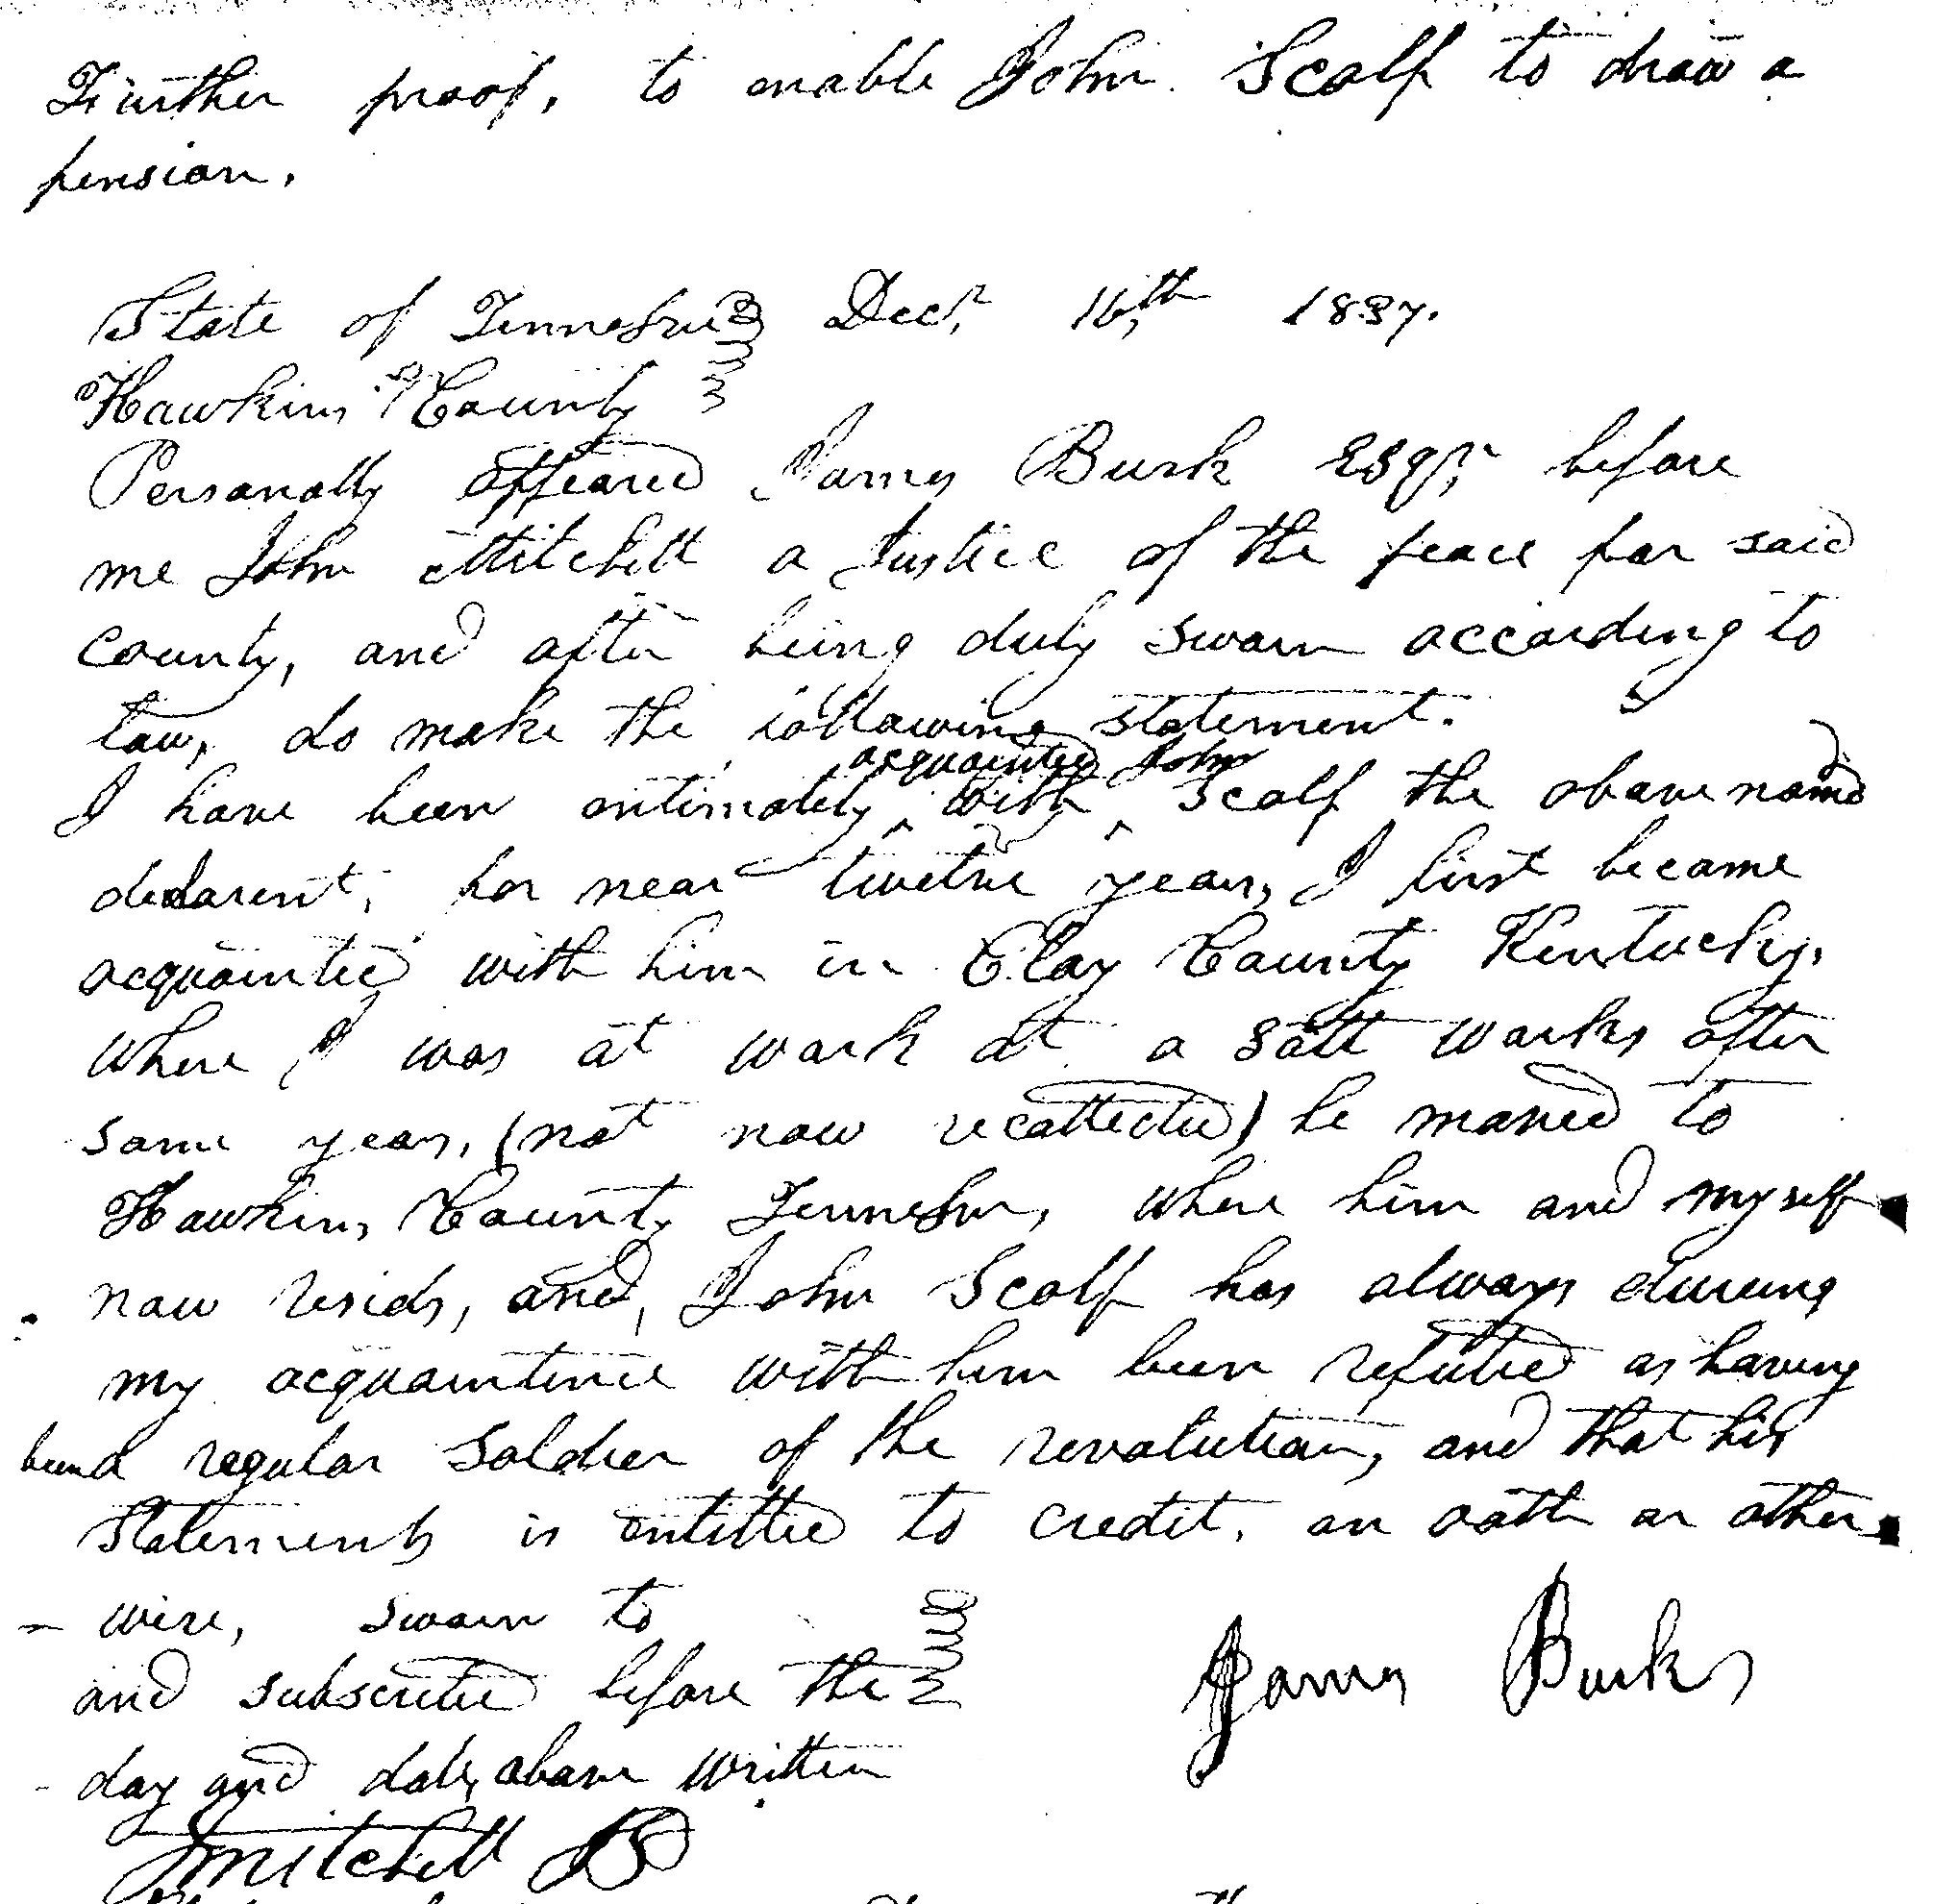 Further proof, to enable John Scalf to draw a
pension.
State of Tennessee Decr. 16th 1837.
Hawkins County
Personally appeared James Burk Esqr, before
me John Mitchell a Justice of the peace for said
County, and after being duly sworn according to
law, do make the following statement.
I have been intimately acquainted with John Scalf the above named
declarent, for near twelve years, I first became
acquainted with him in Clay County Kentucky,
where I was at work at a salt works after
some years, (not now recollected) he moved to
Hawkins County Tennessee, where him and myself
now resids, and, John Scalf has always during
my acquaintence with him been reputed as having
been a regular soldier of the revolution, and that his
statements is entitled to credit, on oath or other
- wise, sworn to
and subscribed before the
James Burks
day and date above written
J Mitchell JP